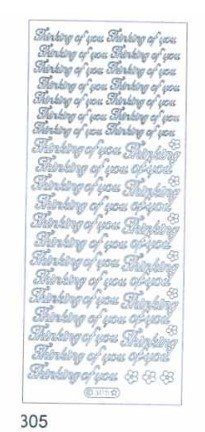 Thinking of you Thinking of you
Thinking of you Thinking of you
Thinking of you Thinking of you
Thinking of you Thinking of you
Thinking of you Thinking of you
Thinking of you Thinking of you
Thinking of you Thinking of you
Thinking of you Thinking
Thinking of you of you
Thinking of you Thinking
Thinking of you of you
Thinking of you Thinking
Thinking of you of you
Thinking of you Thinking
Thinking of you of you
Thinking of you Thinking
Thinking of you of you
Thinking of you Thinking
Thinking of you of you
Thinking of you
305